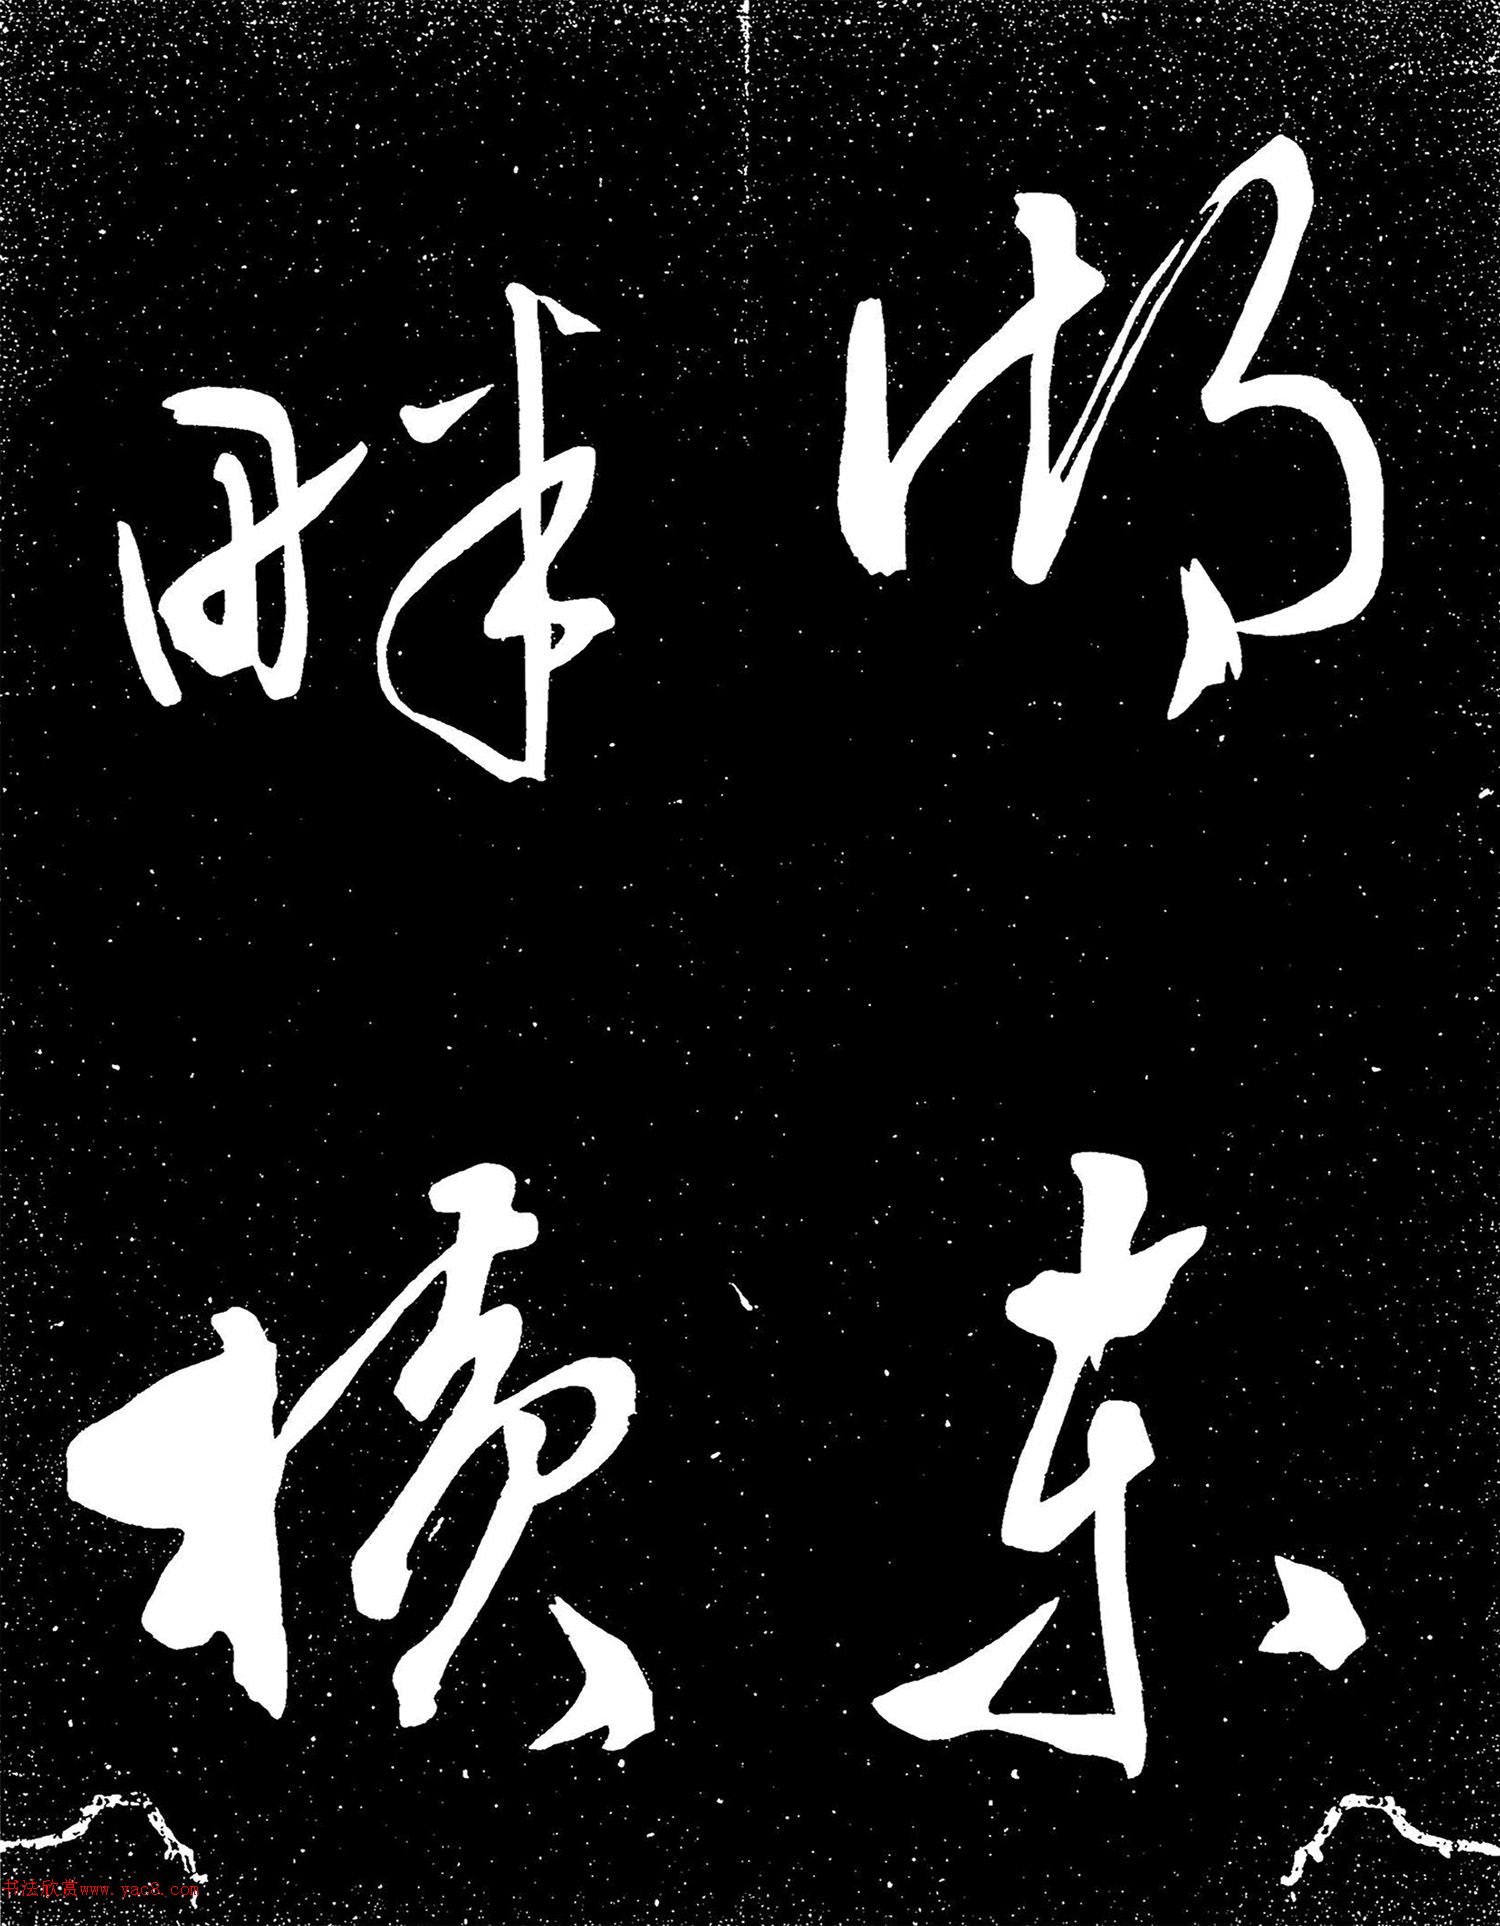 東
畔橫
书法欣赏www.yac8.com